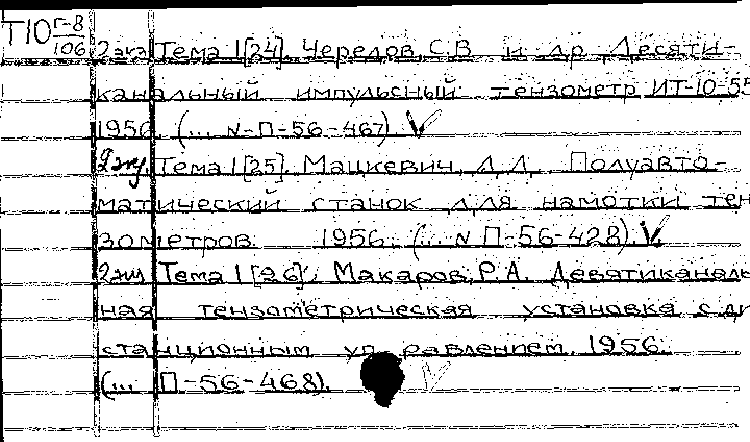 Т10 Г-8/106
2 экз Тема 1[24]. Чередов, С.В. и др. Десяти-
канальный импульсный тензометр ИТ-10-55
1956. (... №-П-56-467) V
2 экз. Тема 1[25]. Мацкевич, Д.Д. Полуавто-
матический станок для намотки тен
зометров 1956. (... № П-56-428). V
2 экз Тема 1[26]. Макаров, Р.А. Девятиканаль
ная тензометрическая установка с ди
станционным управлением. 1956.
(... П-56-468). V